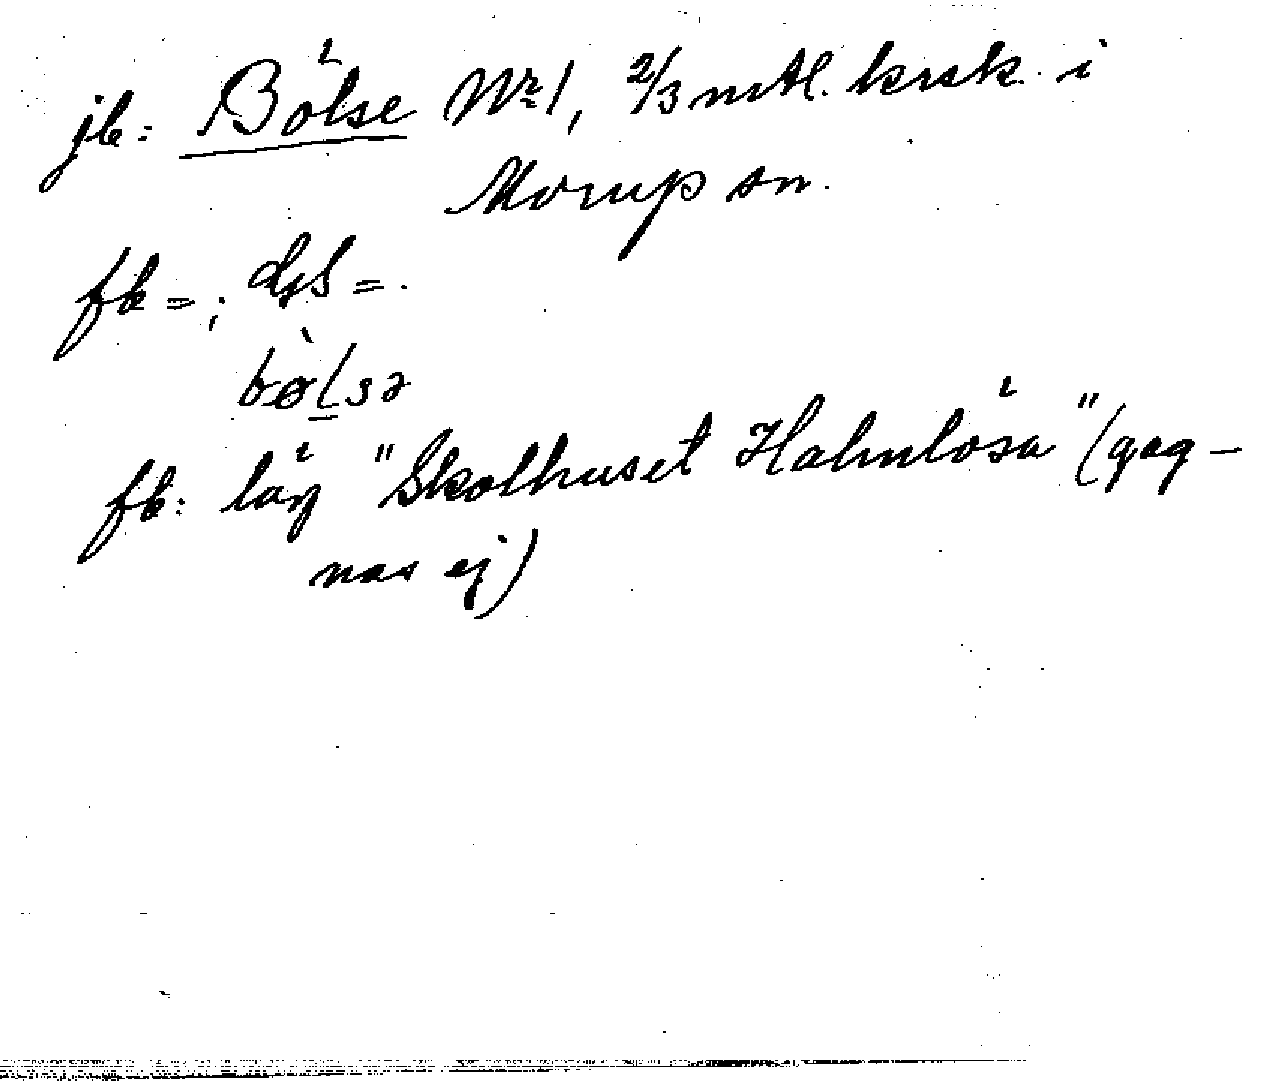 jb: Bölse Nr 1, 2/3 mtl. krsk. i
Morup sn.
fb = ; dgs = .
bø̀lsə
fb: läg "Skolhuset Halmlösa" (gag-
nas ej)